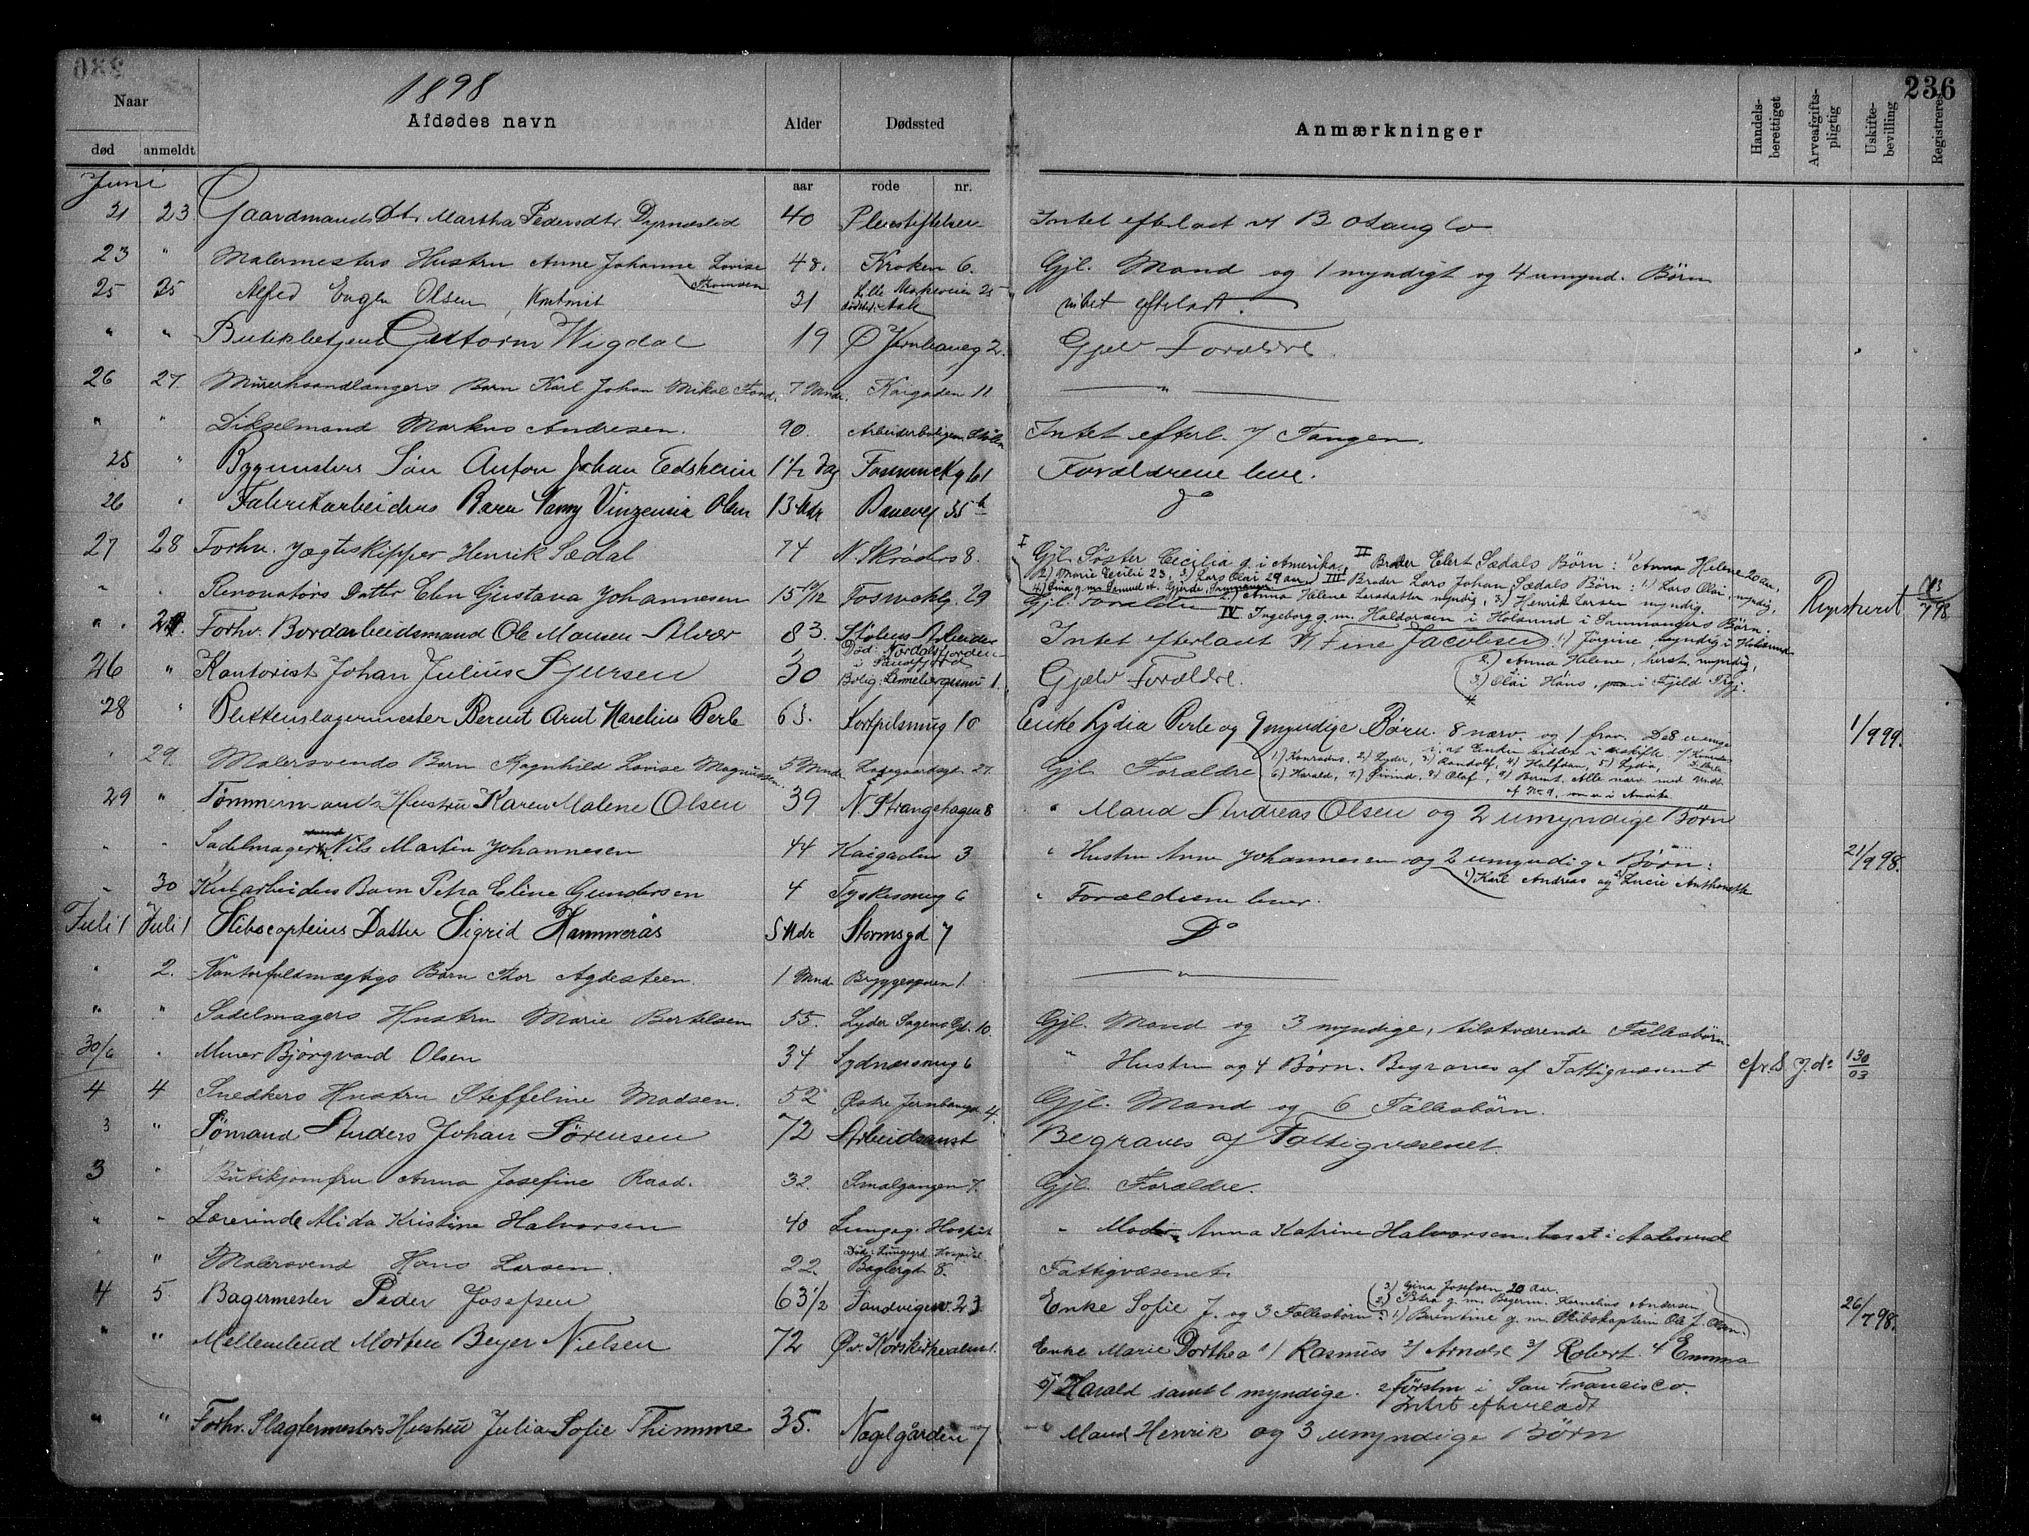 236
1898
Naar
Afdødes navn Alder Dødssted Anmærkninger Handels-berettiget Arveafgifts-pligtig Uskifte-bevilling Registreret
død anmeldt
aar rode nr.
Juni
21 23 Gaardmands Dtr Martha Pedersdtr. Dyrnæslid 40 Pleiestiftelsen Intet efterladt
23 " Malermesters Hustru Anne Johanne Lovise Thomsen 48. Kroken 6. Gjl. Mand og 1 myndigt og 4 umynd. Børn
25 25 Alfed Engen Olsen, Kontorist 31 Lille Markeveien 25 intet efterladt.
" " Butikbetjent Guttorm Wigdal 19 Ø Jernbaneg 2. Gjelv Forældre.
26 27. Murerhaandlangers Barn Karl Johan Mikal 7 Mndr. Kaigaden 11 "
" " Dikselmand Markus Andresen. 90. Arbeiderboligen Intet efterl. Tangen.
25 " Bygmesters Søn Anton Johan Eidsheim 1 1/2 Dag Fosswinckg 61 Forældrene leve.
26 " Fabrikarbeiders Barn Nanny Vinzensia Olsen 13 Mdr Banevej 35 b do
27 28 Forhv. Jægtskipper Henrik Sædal 74 N. Skrøders 8. I Gjl. Søster Cecilia g. i Amerika, II Broder Elert Sædals Børn: 1) Anna Helene 20 aar,
2) Marie Cecilie 23, 3) Lars Olai 29 aar, III Broder Lars Johan Sædals Børn: 1) Lars Olai, myndig,
2) Anna Helene Larsdatter myndig, 3) Henrik Larsen myndig. Registreret 43/798
" " Renovatørs Datter Elen Gustava Johannesen 15 10/12 Fosswinklg. 29 Gjl. Forældre
IV Ingeborg g. m. Haldorsen i Holsund i Sammangers Børn:
" 28. Forhv. Bordarbeidsmand Ole Monsen Alvær 83. Stølens Arbeider Intet efterladt V/ Fine Jacobsen. 1) Torgine, myndig i Holsund
2) Anna Helene, hvist. myndig,
3) Olai Hans, i Fjeld Prgj.
26 " Kontorist Johan Julius Sjursen 30 Død: Nordalsfjorden i Sønnfjord Bolig: Lennebergsmu 1. Gjælv Forældre.
28 " Blikkenslagermester Berent Arnt Marelius Berle 63. Forfpilsmug 10 Enke Lydia Berle og 9 myndige Børn. 8 nærv. og 1 frav. 1/999.
1) Konradus, 2) Lyder, 3) Randolf, 4) Halfdan, 5) Lydia,
6) Harald, 7) Øivind, 8) Olaf, 9) Bernt. Alle nærv. med Undt.
af No 9, som er i Amerika.
" 29. Malersvends Barn Ragnhild Lovise Magnussen 5 Mndr Ladegaardsgt 27 Gjl. Forældre
29 " Tømmermands Hustru Karen Malene Olsen 39 N. Strangehagen 8 " Mand Andreas Olsen og 2 umyndige Børn
" " Sadelmager Nils Martin Johannesen 44 Kaigaden 3 " Hustru Anne Johannesen og 2 umyndige Børn: 21/998.
1) Karl Andreas og 2) Lucie Anthonette
" 30 Kularbeiders Barn Petra Eline Gundersen 4 Tyskesmug 6 " Forældrene lever.
Juli 1 Juli 1 Skibscapteins Datter Sigrid Hammerås 5 Mdr Stormsgd 7 Do
" 2. Kontorfuldmægtigs Barn Thor Agdesteen. 1 Mnd Bryggesporen 1. "
" " Sadelmagers Hustru Marie Bertelsen 55. Lyder Sagens Gd. 10. Gjl. Mand og 3 myndige, tilstværende Fællesbørn.
30/6 " Murer Bjørgvard Olsen 34 Sydnæssmug 6 " Hustru og 4 Børn. Begraves af Fattigvæsenet cfr. S. J. do 130/03
4 4 Snedkers Hustru Steffeline Madsen. 52 Østre Jernbanegd 4. Gjl. Mand og 6 Fællesbørn.
3 " Sømand Anders Johan Sørensen 72 Arbeidsanst Begraves af Fattigvæsenet.
3 " Butikjomfru Anna Josefine Raad. 32. Smalgangen 7. Gjl. Forældre.
" " Lærerinde Alida Kristine Halvorsen 40 Lungeg. Hospit " Moder Anna Katrine Halvorsen, bosat i Aalesund
" " Malersvend Hans Larsen. 22. Død: Lungegrd. Hospital. Baglergt 8. Fattigvæsenet.
4 5 Bagermester Peder Josefsen 63 1/2 Sandvigen 23 Enke Sofie J. og 3 Fællesbørn: 1) Berentine g. m. Skibskaptein Ole J. Olsen. 26/798.
2) Petra g. m. Bagerm. Kornelius Andersen
3) Gina Josefsen 20 Aar.
" " Mellembud Morten Beyer Nielsen 72 Øv. Korskirkealm 1. Enke Marie Dorthea 1/ Rasmus 2/ Arnold 3/ Robert. 4 Emma
5/ Harald samtl myndige. 2 førstn i San Francisco.
Intet efterladt
" " Forhv. Slagtermesters Hustru Julia Sofie Thimme 35. Nagelgården 7 Mand Henrik og 3 umyndige Børn